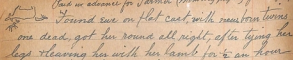 Paid in advance for
Found ewe on flat cast with newborn twins
one dead, got her round all right, after tying her
legs & leaving her with her lamb for ½ an hour